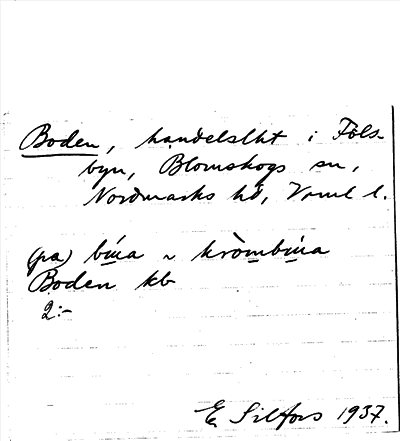 Boden, handelslht i Föls-
byn, Blomskogs sn,
Nordmarks hd, Vrml l.
(pa) búa ~ kròmbúa
Boden kb
2:-
E. Silfors 1937.